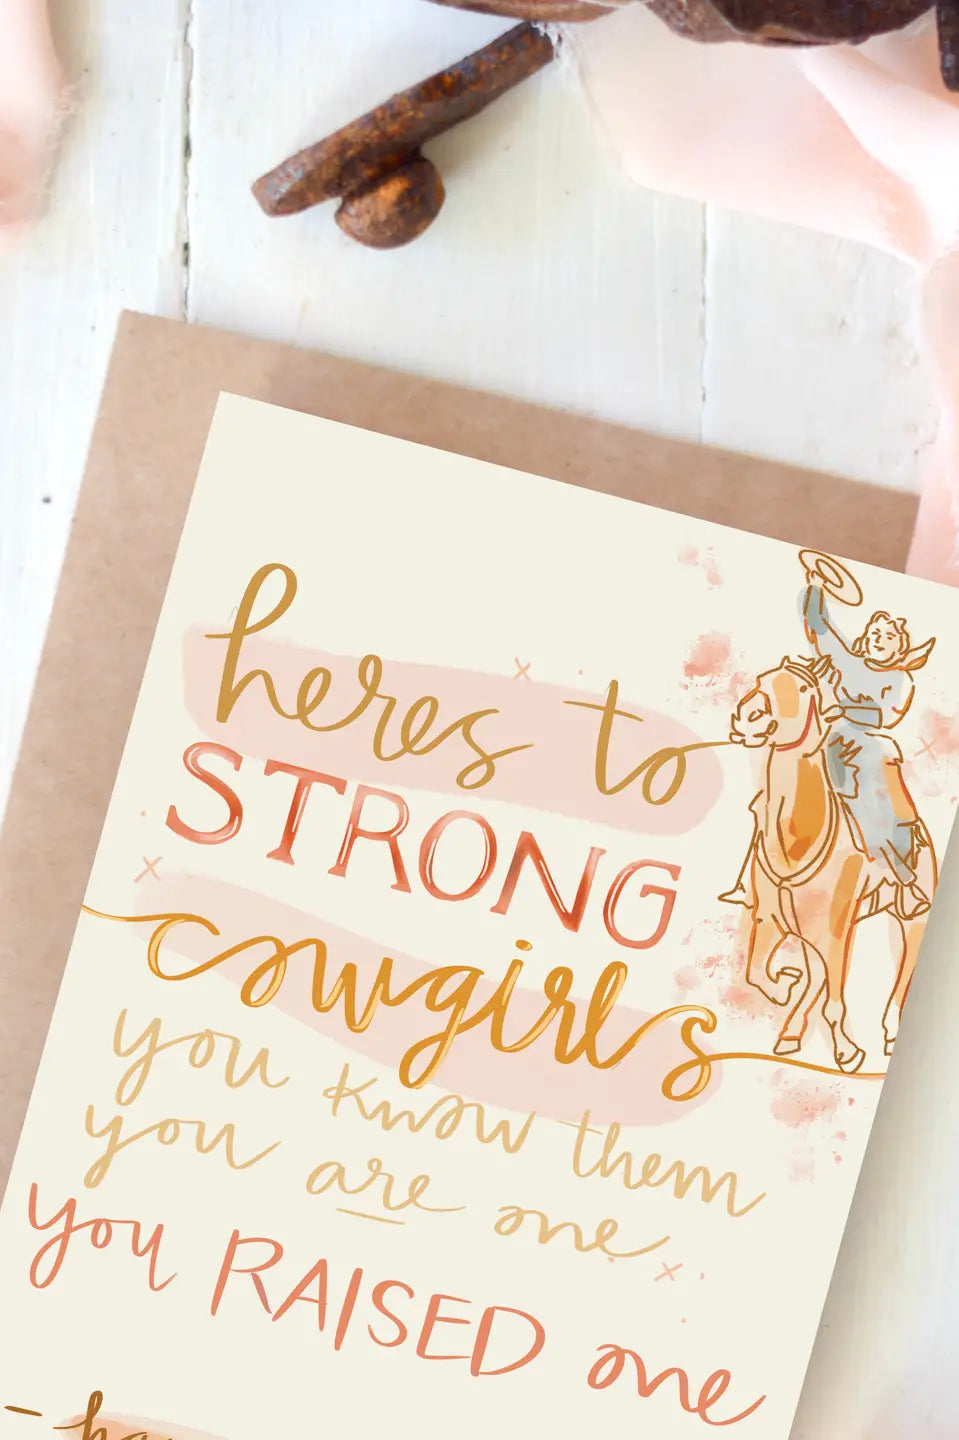 heres to
STRONG
cowgirls
you know them
you are one.
you RAISED one